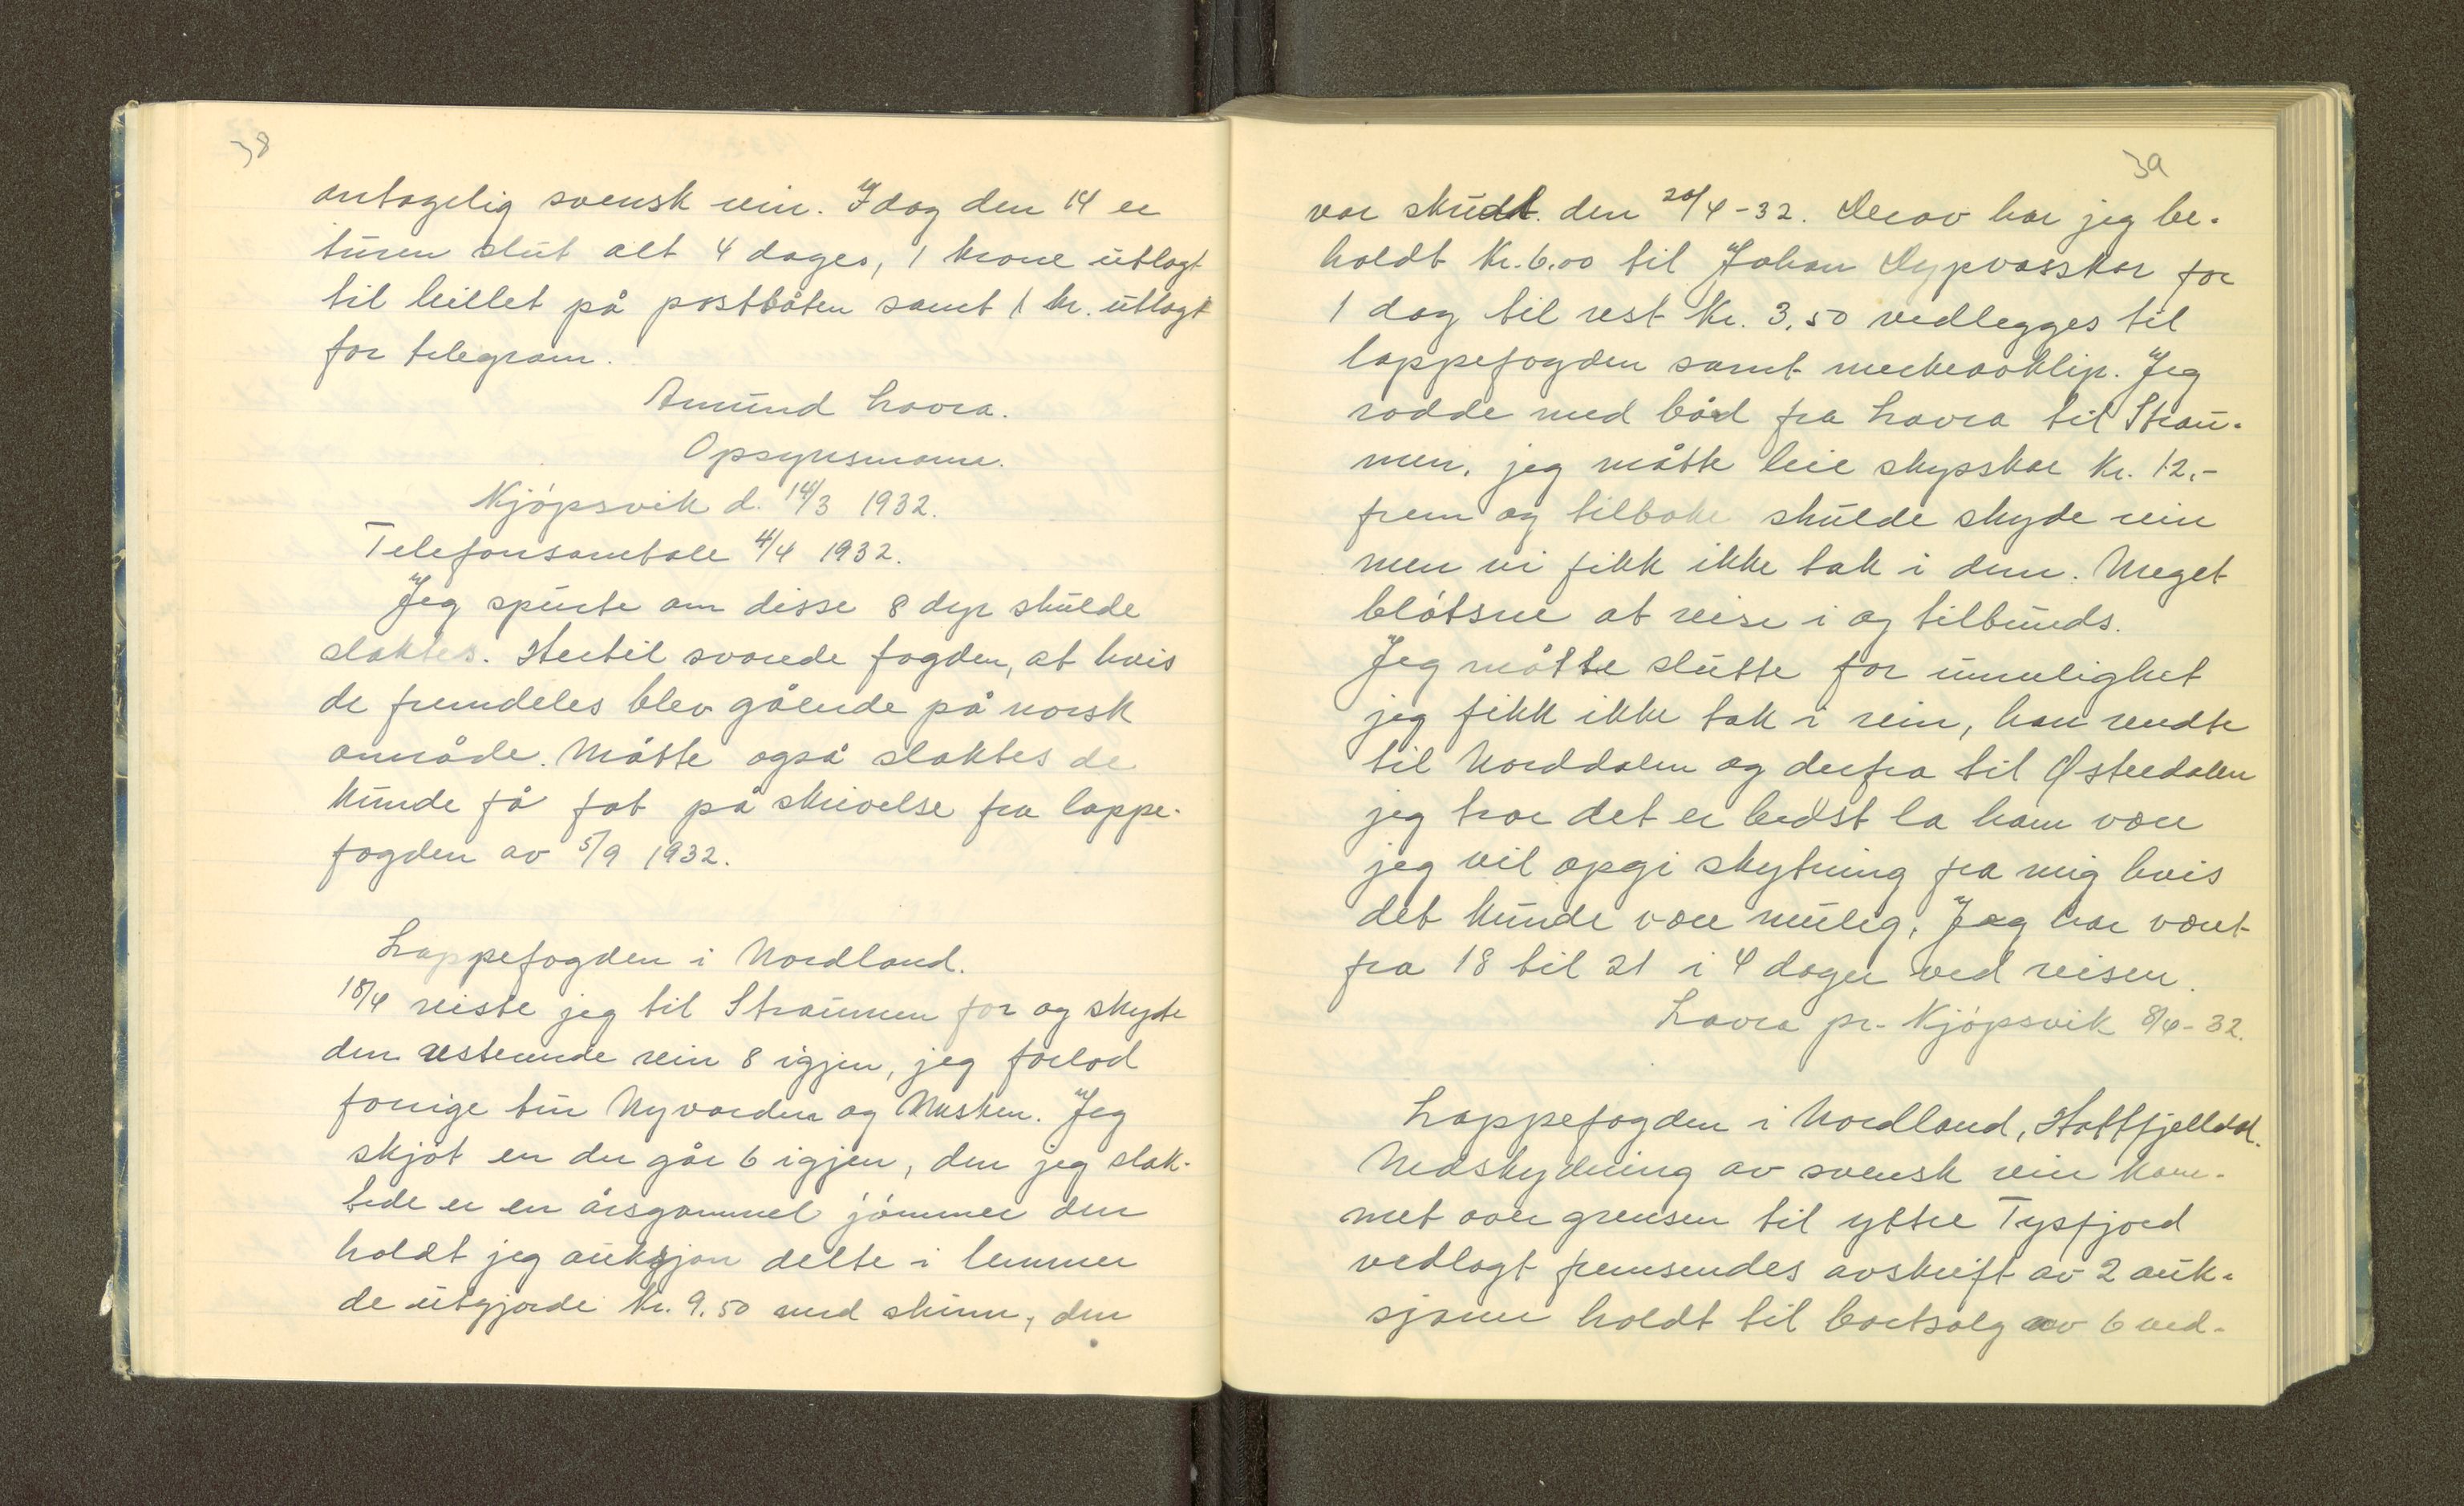 38
antagelig svensk rein. Idag den 14 er
turen slut alt 4 dager, 1 krone utlagt
til billet på postbåten samt 1 kr. utlagt
for telegram.
Amund Lavra.
Opsynsmann.
Kjópsvik d. 14/3 1932.
Telefonsamtale 4/4 1932.
Jeg spurte om disse 8 dyr skulde
slaktes. Hertil svarede fogden, at hvis
de fremdeles blev gående på norsk
område. Måtte også slaktes de
kunde få fat på skrivelse fra lappe-
fogden av 5/9 1932.
Lappefogden i Nordland.
18/4 reiste jeg til Straumen for og skyte
den resterende rein 8 igjen, jeg forlod
forrige tur Nyvarden og Musken. Jeg
skjót en der går 6 igjen, den jeg slak-
tede er en årsgammel jómmer den
holdt jeg auksjon delte i lemmer
de utgjorde kr. 9.50 med skinn, den
39
var skudt. den 20/4-32. Derav har jeg be-
holdt Kr. 6.00 til Johan Dypvasskar for
1 dag til rest Kr. 3.50 vedlegges til
lappefogden samt merkeavklip. Jeg
rodde med båd fra Lavra til Strau-
men, jeg måtte leie skysskar Kr. 12.-
frem og tilbake skulde skyde rein
men vi fikk ikke tak i dem. Meget
blótsne at reise i og tilbunds.
Jeg måtte slutte for umulighet
jeg fikk ikke tak i rein, han rendte
til Norddalen og derfra til Østerdalen
jeg tror det er bedst la ham være
jeg vil opgi skytning fra mig hvis
det kunde være mulig, Jeg har været
fra 18 til 21 i 4 dager ved reisen.
Lavra pr. Kjópsvik 8/4-32.
Lappefogden i Nordland, Hattfjelldal.
Nedskydning av svensk rein kom-
met over grensen til yttre Tysfjord
vedlagt fremsendes avskrift av 2 auk-
sjoner holdt til bortsalg av 6 ved-